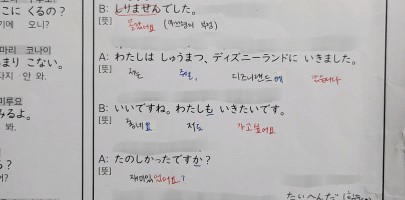 こに くるの?
기에 오니?
マリ コナイ
まり こない。
하지 안 와.
ミルヨ
みるよ。
봐.
る?
?
B: しりませんでした。
[뜻] 몰랐어요
A: わたしは しゅうまつ、ディズニーランドに いきました。
[뜻] 저는 주말, 디즈니랜드에
B: いいですね。わたしも いきたいです。
[뜻] 좋네요 저도 가고싶어요
A: たのしかったですか?
[뜻] 재미있었어요?
たいへんだ